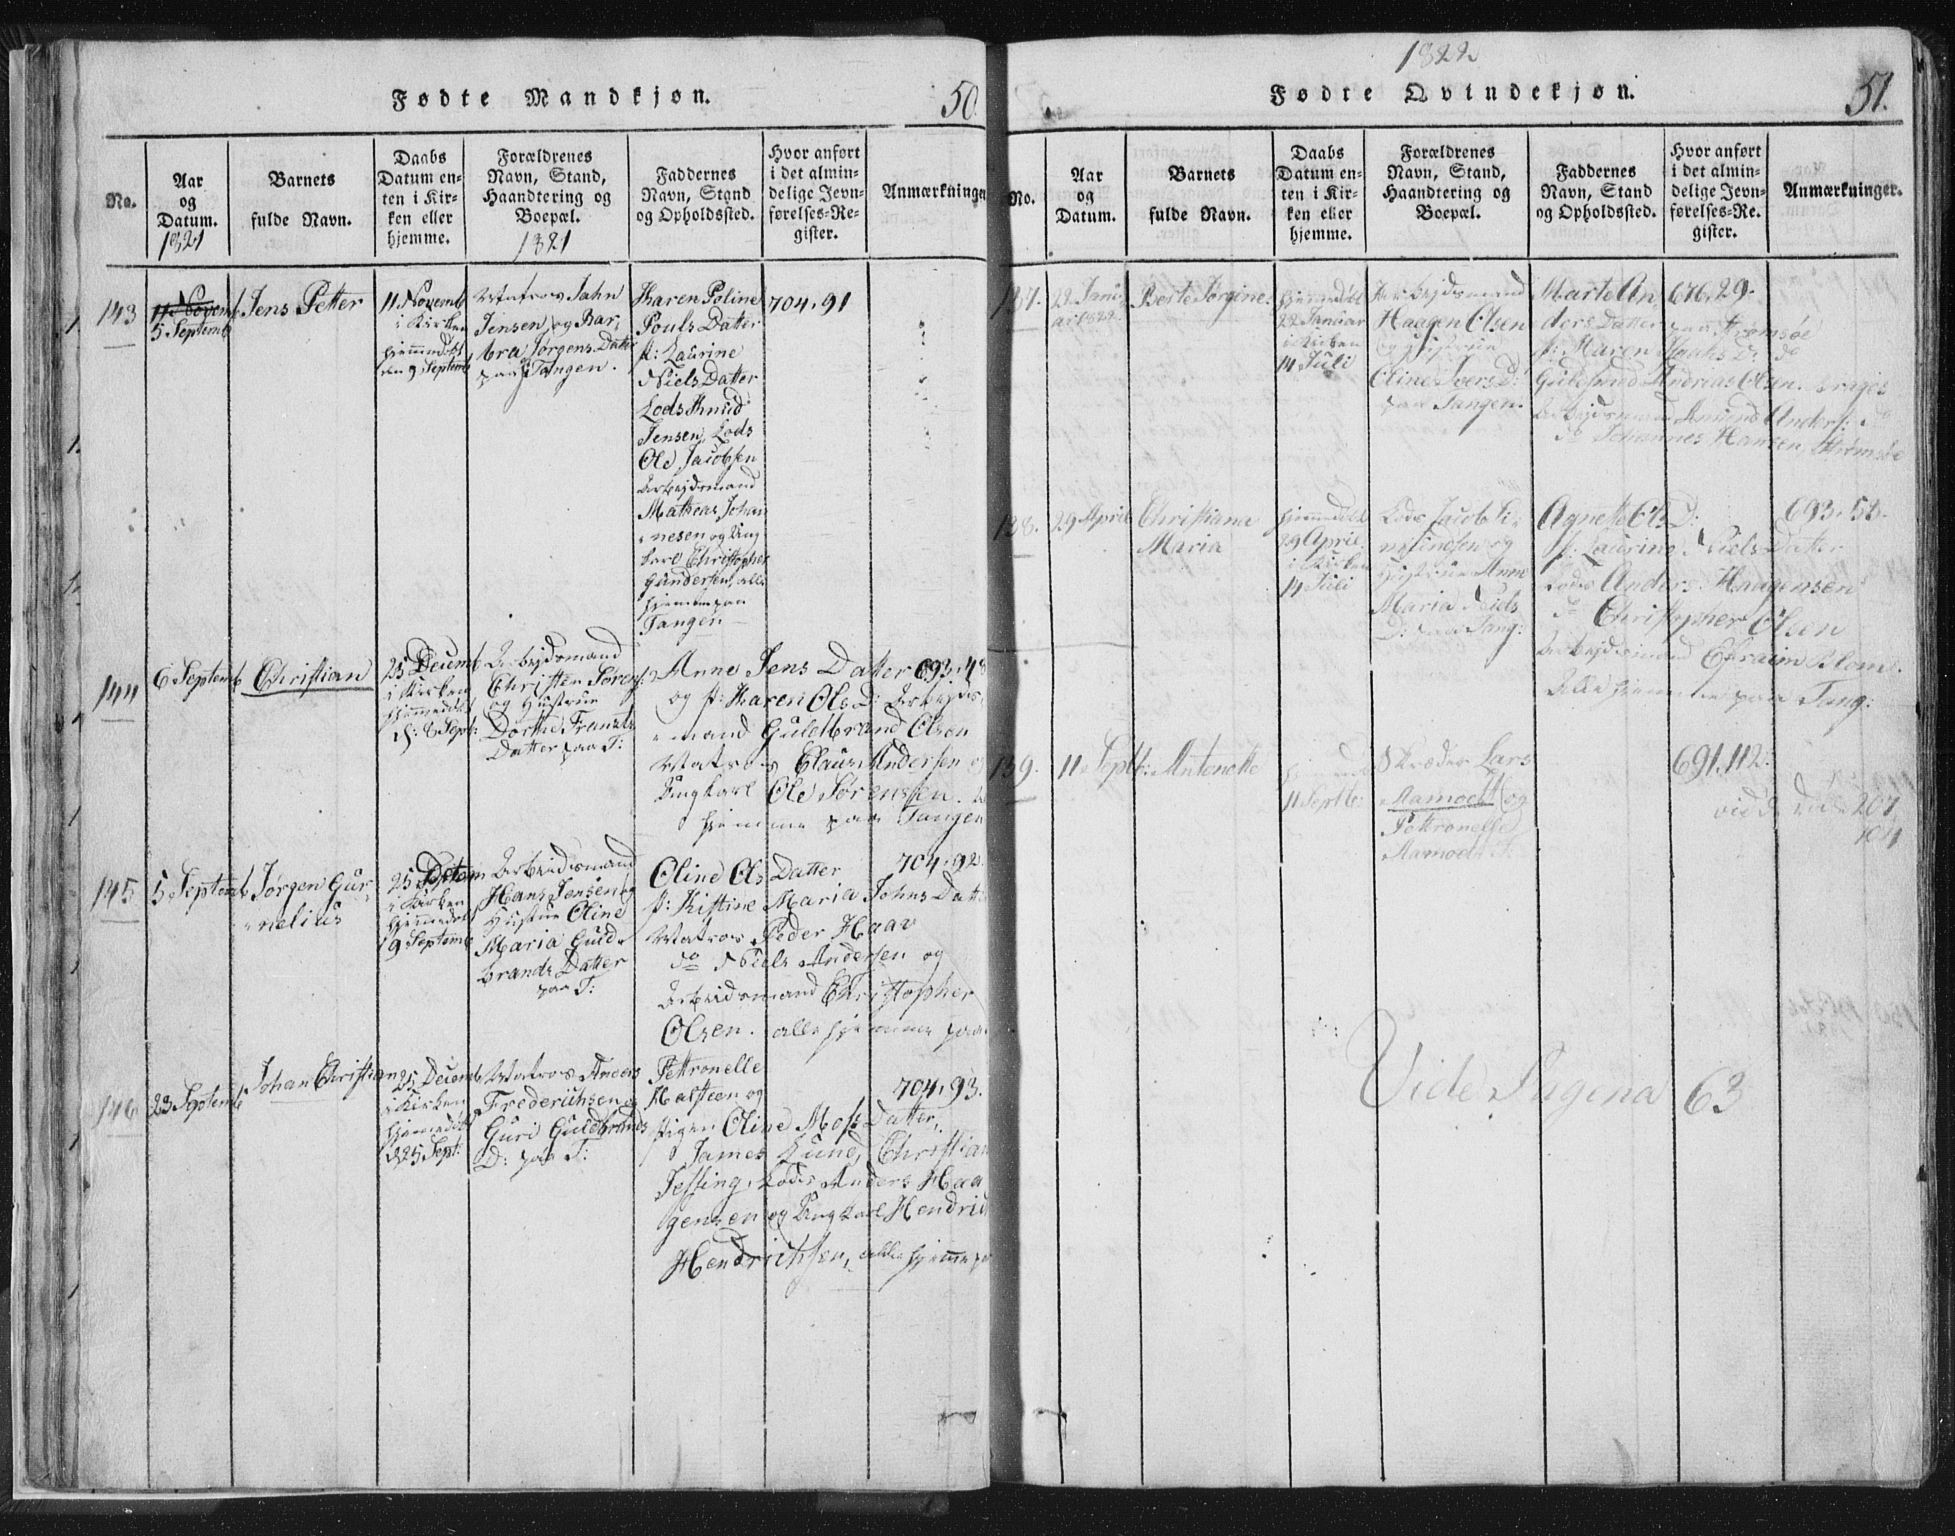 Fødte Mandkjøn.
50.
No.
Aar
og
Datum.
1821
Barnets
fulde Navn.
Daabs
Datum en-
ten i Kir-
ken eller
hjemme.
Forældrenes
Navn, Stand,
Haandtering og
Boepæl.
1821
Faddernes
Navn, Stand
og Opholdssted.
Hvor anført
i det almin-
delige Jevn-
førelses-Re-
gister.
Anmærkninger
143
11 Novemb
5 Septemb
Jens Petter
11 Novemb
i Kirken
hjemmedøbt
den 9 Septemb
Matros Jahn
Jensen og Bar,
bra Jørgens Datter
paa Tangen.
Karen Poline
Pouls Datter
p: Laurine
Niels Datter
Lods Knud
Jensen, Lods
Ole Jacobsen
Arbejdsmand
Matheas Johan
nesen og Ung
karl Christopher
Gundersen, alle
hjemme paa
Tangen
704.91
144
6 Septemb
Christian
25 Decemb
i Kirken
hjemmedøbt
d: 8 Sept:
Arbejdsmand
Christen Sørens:
og Hustrue
Dorthe Frantz
Datter paa T:
Anne Jens Datter
og p: Karen Ols D: Arbejds,
mand Guldbrand Olsen
Matros Claus Andersen og
Ungkarl Ole Sørensen.
hjemme paa Tangen
693.48
145
5 Septemb
Jørgen Gur,
nelius
25 Decem
i Kirken
hjemmedøbt
9 Septemb
Arbeidsmand
Hans Jensen og
Hustrue Oline
Maria Guld
brands Datter
paa T:
Oline Ols Datter
p: Kistine Maria Johns Datter
Matros Peder Haav
do Niels Andersen og
Arbeidsmand Christopher
Olsen. alle hjemme paa
704.92.
146
23 Septemb
Johan Christian
25 Decemb
i Kirken
hjemmedøbt
d 25 Sept:
Matros Anders
Frederichsen og
Guri Guldbrands
D: paa T:
Pettronelle
Halsteen og
pigen Oline Mos Datter,
James Lund, Christian
Jessing, Lods Anders Haa
gensen og Ungkarl Hendrich
Hendrichsen, alle hjemme paa
704.93.
1822
Fødte Qvindekjøn.
51.
No.
Aar
og
Datum.
Barnets
fulde Navn.
Daabs
Datum en-
ten i Kir-
ken eller
hjemme.
Forældrenes
Navn, Stand,
Haandtering og
Boepæl.
Faddernes
Navn, Stand
og Opholdssted.
Hvor anført
i det almin-
delige Jevn-
førelses-Re.
gister.
Anmærkninger.
137.
22 Janu
ar 1822
Berte Jørgine
hjemmedøbt
22 Januar
i Kirken
14 Juli
Arbejdsmand
Haagen Olsen
og Hustrue
Oline Ivers D:
paa Tangen.
Marte An
ders Datter paa Strømsøe
p: Maren Haaks D: do
Guldbrand Andreas Olsen. Brages
Arbejdsmand Amund Anders: do
do Johannes Hansen Strømsøe
676.29.
138.
29 April
Christiana
Maria
hjemmedøbt
29 April
i Kirken
14 Juli
Lods Jacob Si,
mensen og
Hustrue Anne
Maria Niels
D: paa Tang:
Agnethe Ols D:
p: Laurine Niels Datter
Lods Anders Haagensen
do Christopher Olsen
Arbejdsmand Ephraim Blom.
Alle hjemme paa Tang:
693.52.
139.
11 Septb:
Antonette
hjemme
11 Septbr:
Skræder Lars
Aamodt og
Pettronelle
Aamodt
691.112.
vide 207
Vide Pagina 63